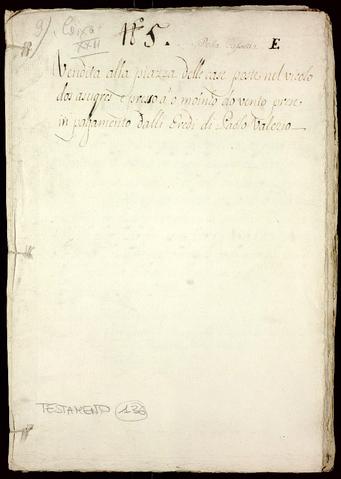 9) Caixa
XXII
Nº 5. Della E
Vendita alla piazza delle case poste nel vicolo
dos asugres e preso à o mointo do vento prese
in pagamento dalli Eredi di Paolo Valerio
TESTAMENTO 136